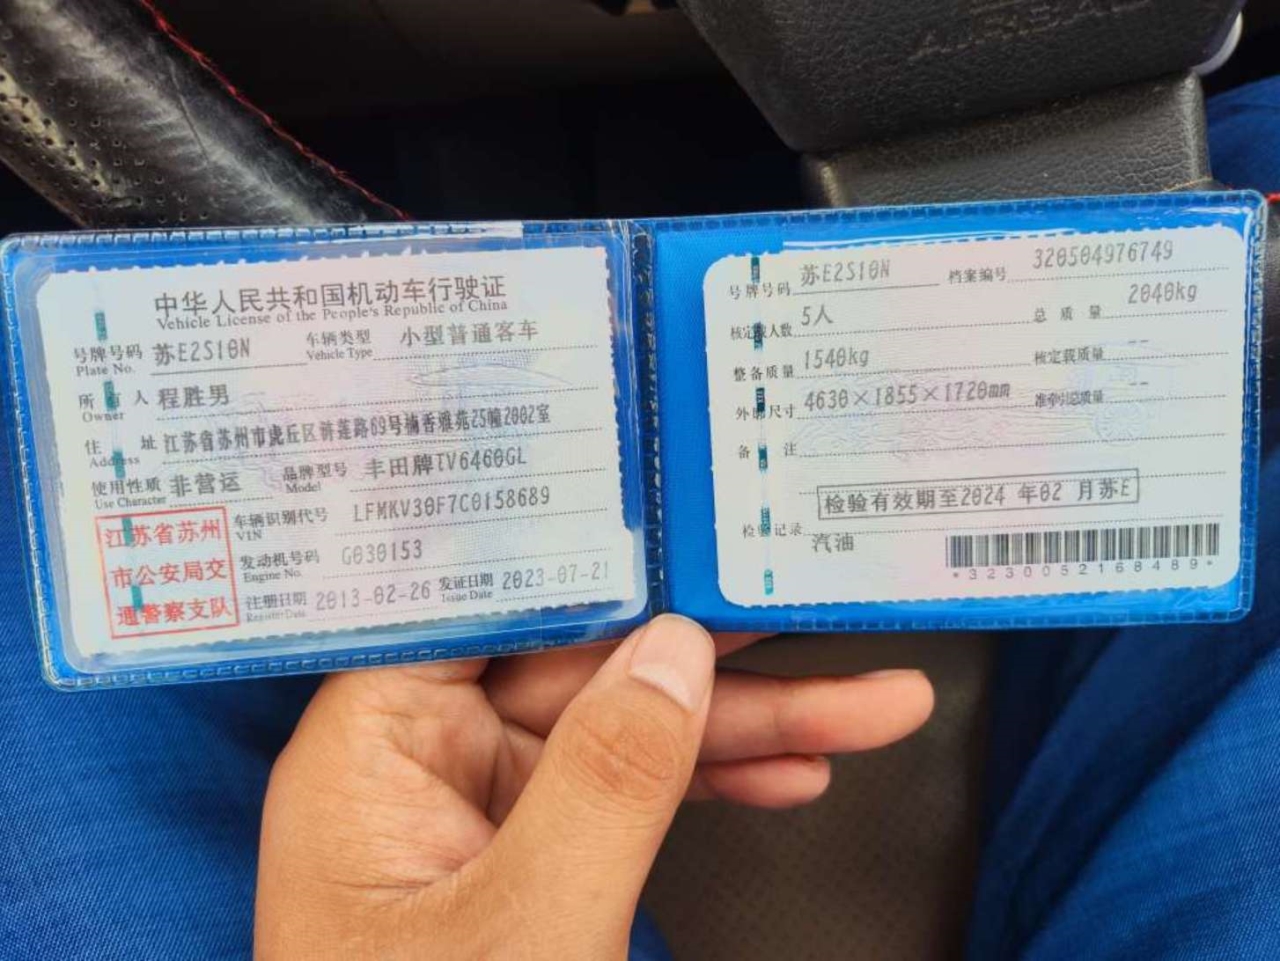 中华人民共和国机动车行驶证
Vehicle License of the People's Republic of China
号牌号码 苏E2S10N 车辆类型 小型普通客车
Plate No. Vehicle Type
所有人 程胜男
Owner
住址 江苏省苏州市虎丘区 路69号 雅苑25幢2002室
Address
使用性质 非营运 品牌型号 丰田牌TV6460GL
Use Character Model
车辆识别代号 LFMKV30F7C0158689
VIN
发动机号码 G030153
Engine No.
注册日期 2013-02-26 发证日期 2023-07-21
Register Date Issue Date
江苏省苏州
市公安局交
通警察支队
号牌号码 苏E2S10N 档案编号 320504976749
核定载人数 5人 总质量 2040kg
整备质量 1540kg 核定载质量 --
外廓尺寸 4630×1855×1720mm 准牵引总质量 --
备注
检验有效期至2024 年02 月苏E
检验记录
汽油
*3230052168489*